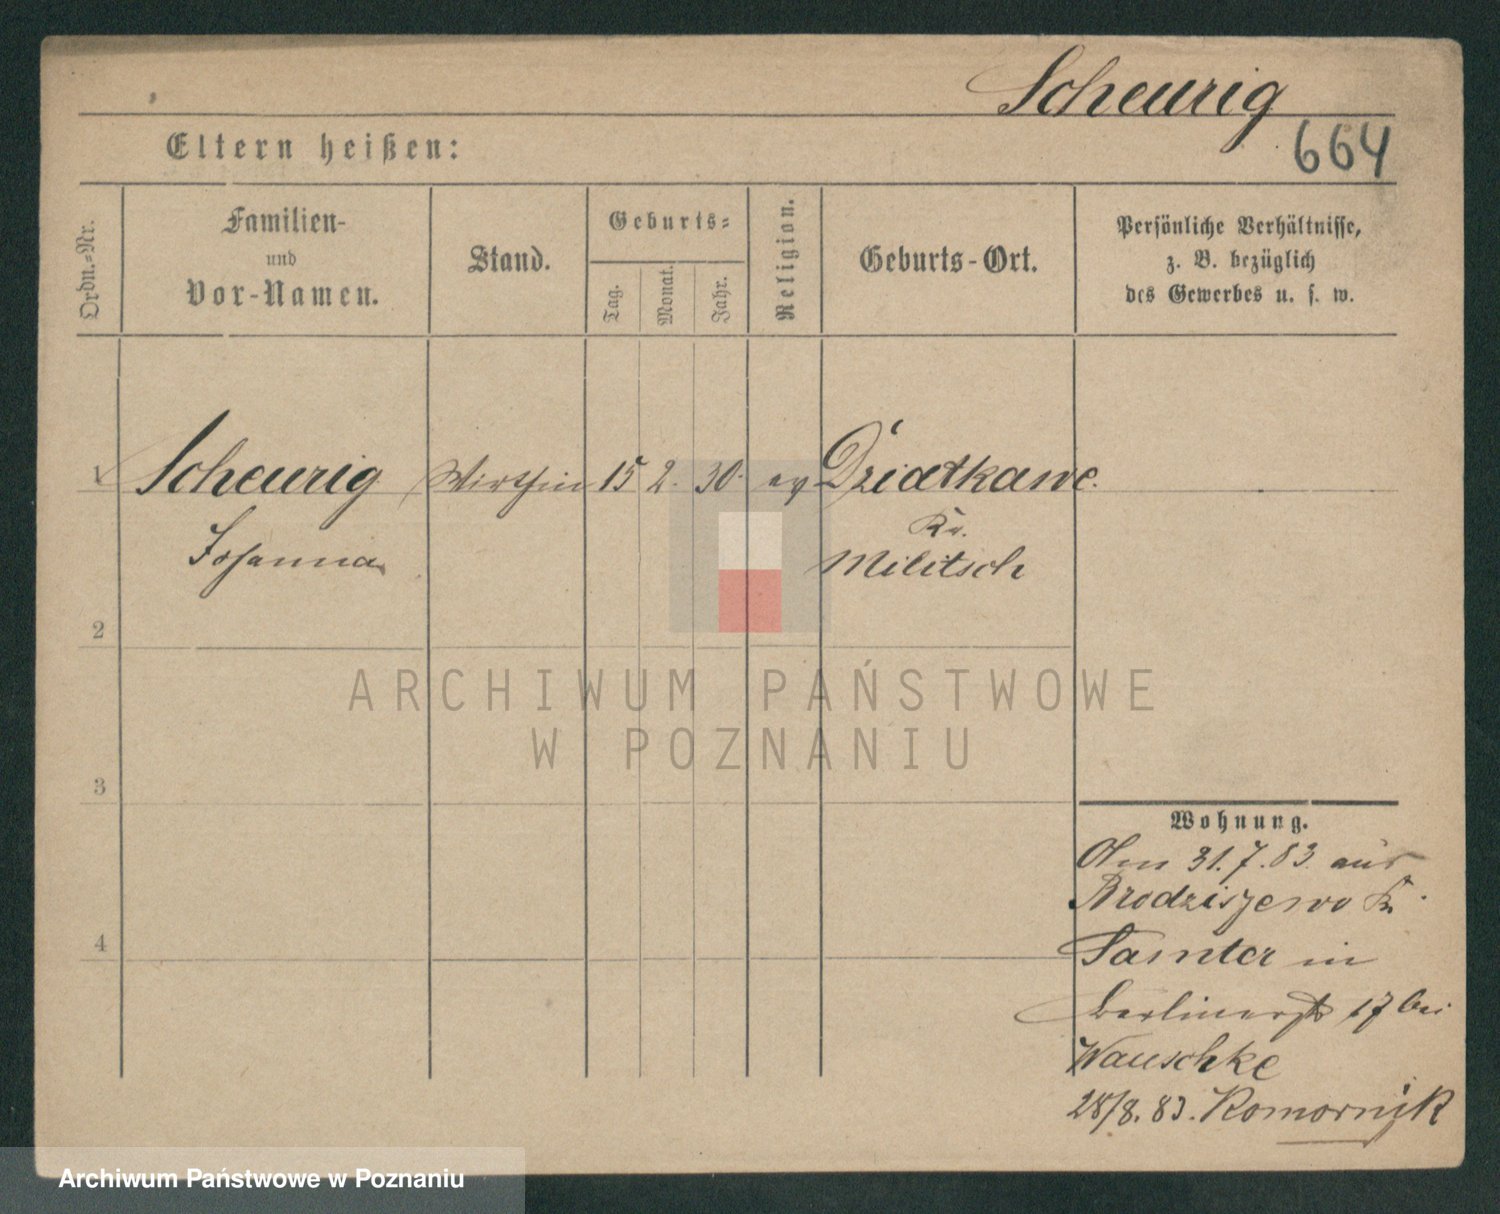 Scheurig
664
Eltern heißen:
Ordn.-Nr.
Familien-
und
Vor-Namen.
Stand.
Geburts-
Tag.
Monat.
Jahr.
Religion.
Geburts-Ort.
Persönliche Verhältnisse,
z. B. bezüglich
des Gewerbes u. s. w.
1 Scheurig Wirthin 15 2. 30. ev Dziatkawe.
Kr.
Johanna Militsch
2
ARCHIWUM PAŃSTWOWE
W POZNANIU
3
Wohnung.
Am 31.7.83. aus
Brodziszewo Kr.
4
Samter in
Berlinerstr 17 bei
Wauschke
28/8.83. Komornik
Archiwum Państwowe w Poznaniu